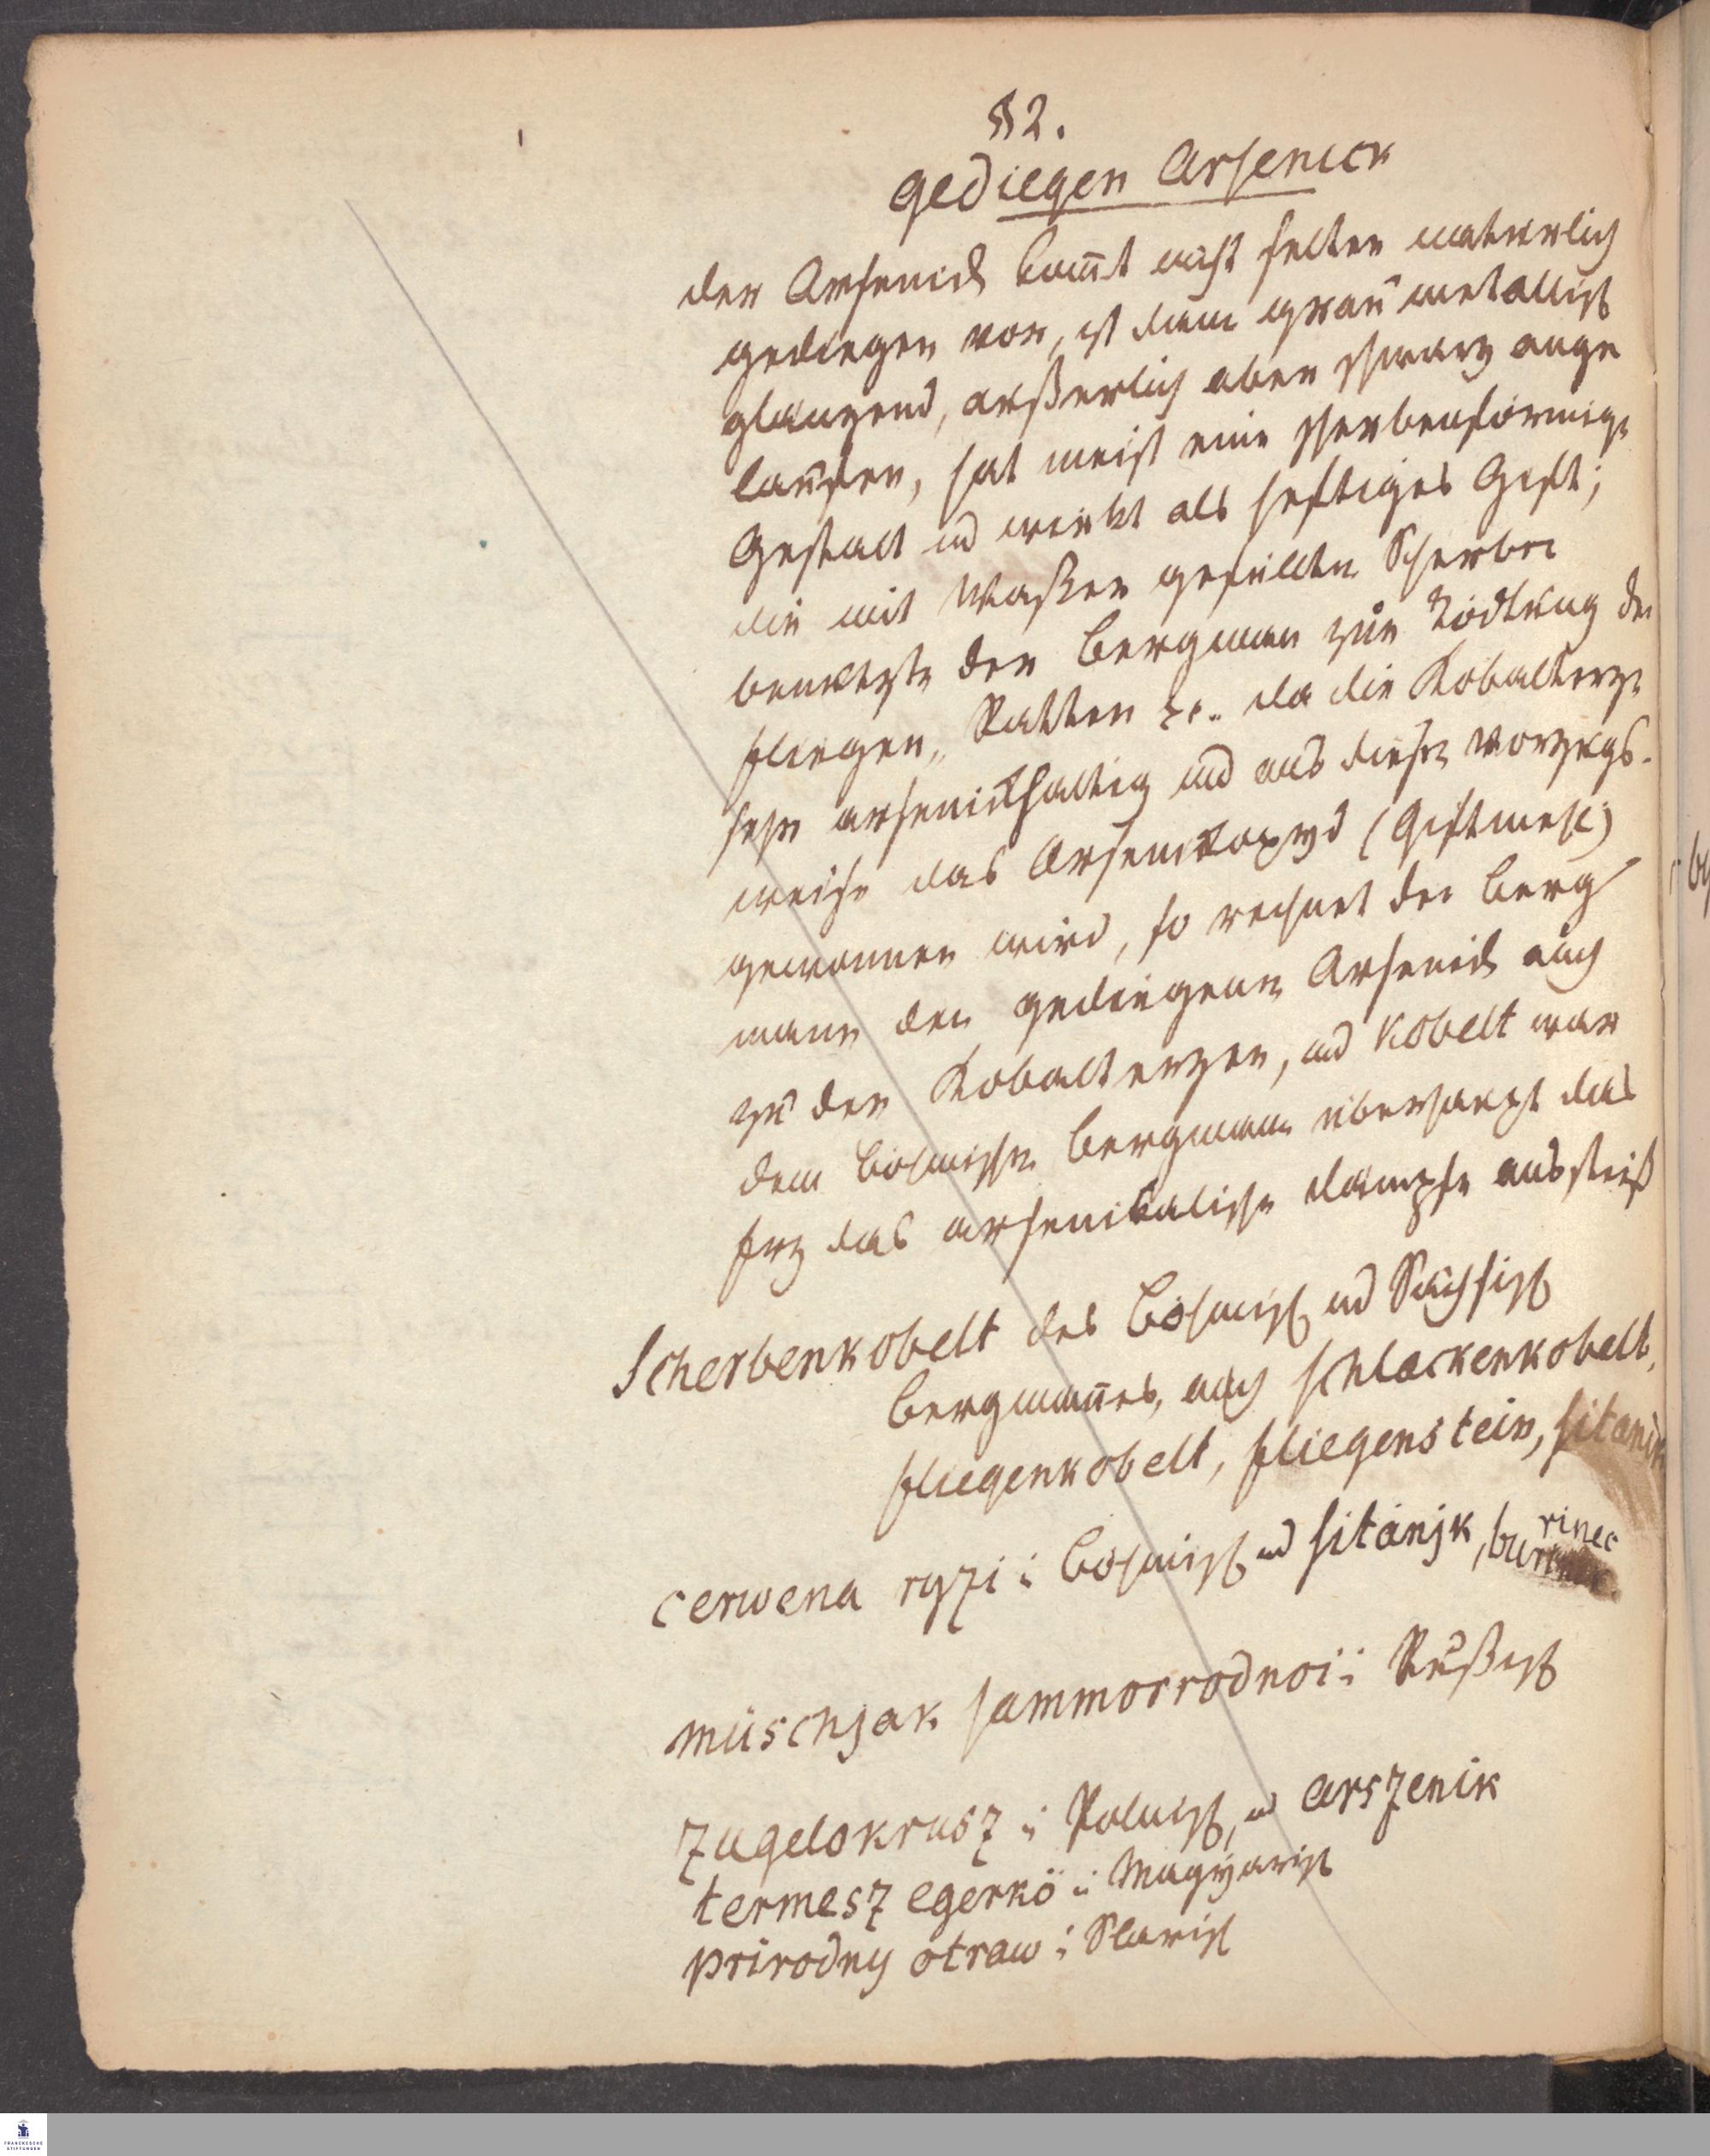 § 2.
gediegen Arsenick
der Arsenick kom̅t nicht selten naturlich
gediegen vor, ist dann grau metallisch
glanzend, außerlich aber schwarz ange
laufen, hat meist eine scherbenförmige
Gestalt und wirkt als heftiges Gift;
die mit Waßer gefullten Scherben
benutzte der Bergman zur Tödtung der
fliegen, Ratten etc. da die Kobalterze
sehr arsenickhaltig und aus diesen vorzugs-
weise das Arsenickoxyd (Giftmehl)
gewonnen wird, so rechnet der Berg
mann den gediegenen Arsenick auch
zu den Kobalterzen, und Kobelt war
dem bohmischen Bergmann uberhaupt das
Erz das arsenikalische dampfe ausstieß
Scherbenkobelt des Böhmisch und Sachsisch
Bergman̅es, auch schlackenkobelt,
fliegenkobelt, fliegenstein, sitanik
cerwena ryzi i Bohmisch und sitanjk, burinec
müschjak sammorrodnoi i Rußisch
zugelokrusz i Polnisch, und arszenik
termesz egerkö i Magyarisch
prirodny otraw i Slavisch
FRANCKESCHE
STIFTUNGEN